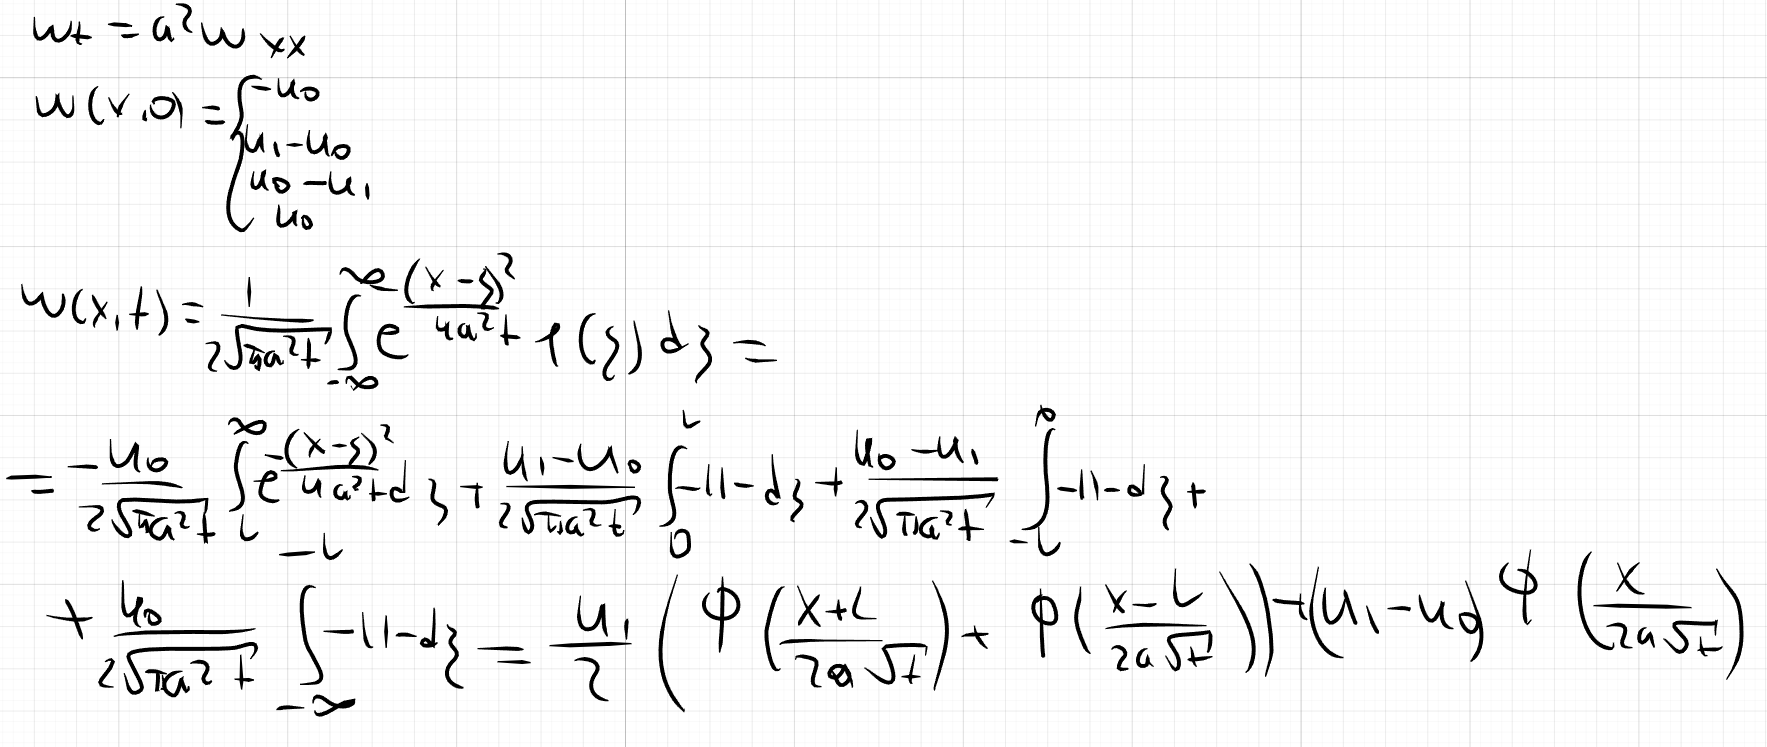 w_t = a² w_xx
w(x,0) = { -u₀
u₁-u₀
u₀-u₁
u₀
w(x,t) = 1/(2√(πa²t)) ∫_{-∞}^{∞} e^{-(x-ξ)²/(4a²t)} φ(ξ) dξ =
= -u₀/(2√(πa²t)) ∫_L^∞ e^{-(x-ξ)²/(4a²t)} dξ + (u₁-u₀)/(2√(πa²t)) ∫_0^L -||- dξ + (u₀-u₁)/(2√(πa²t)) ∫_{-L}^0 -||- dξ +
+ u₀/(2√(πa²t)) ∫_{-∞}^{-L} -||- dξ = u₁/2 (Φ((x+L)/(2a√t)) + Φ((x-L)/(2a√t))) + (u₁-u₀) Φ(x/(2a√t))